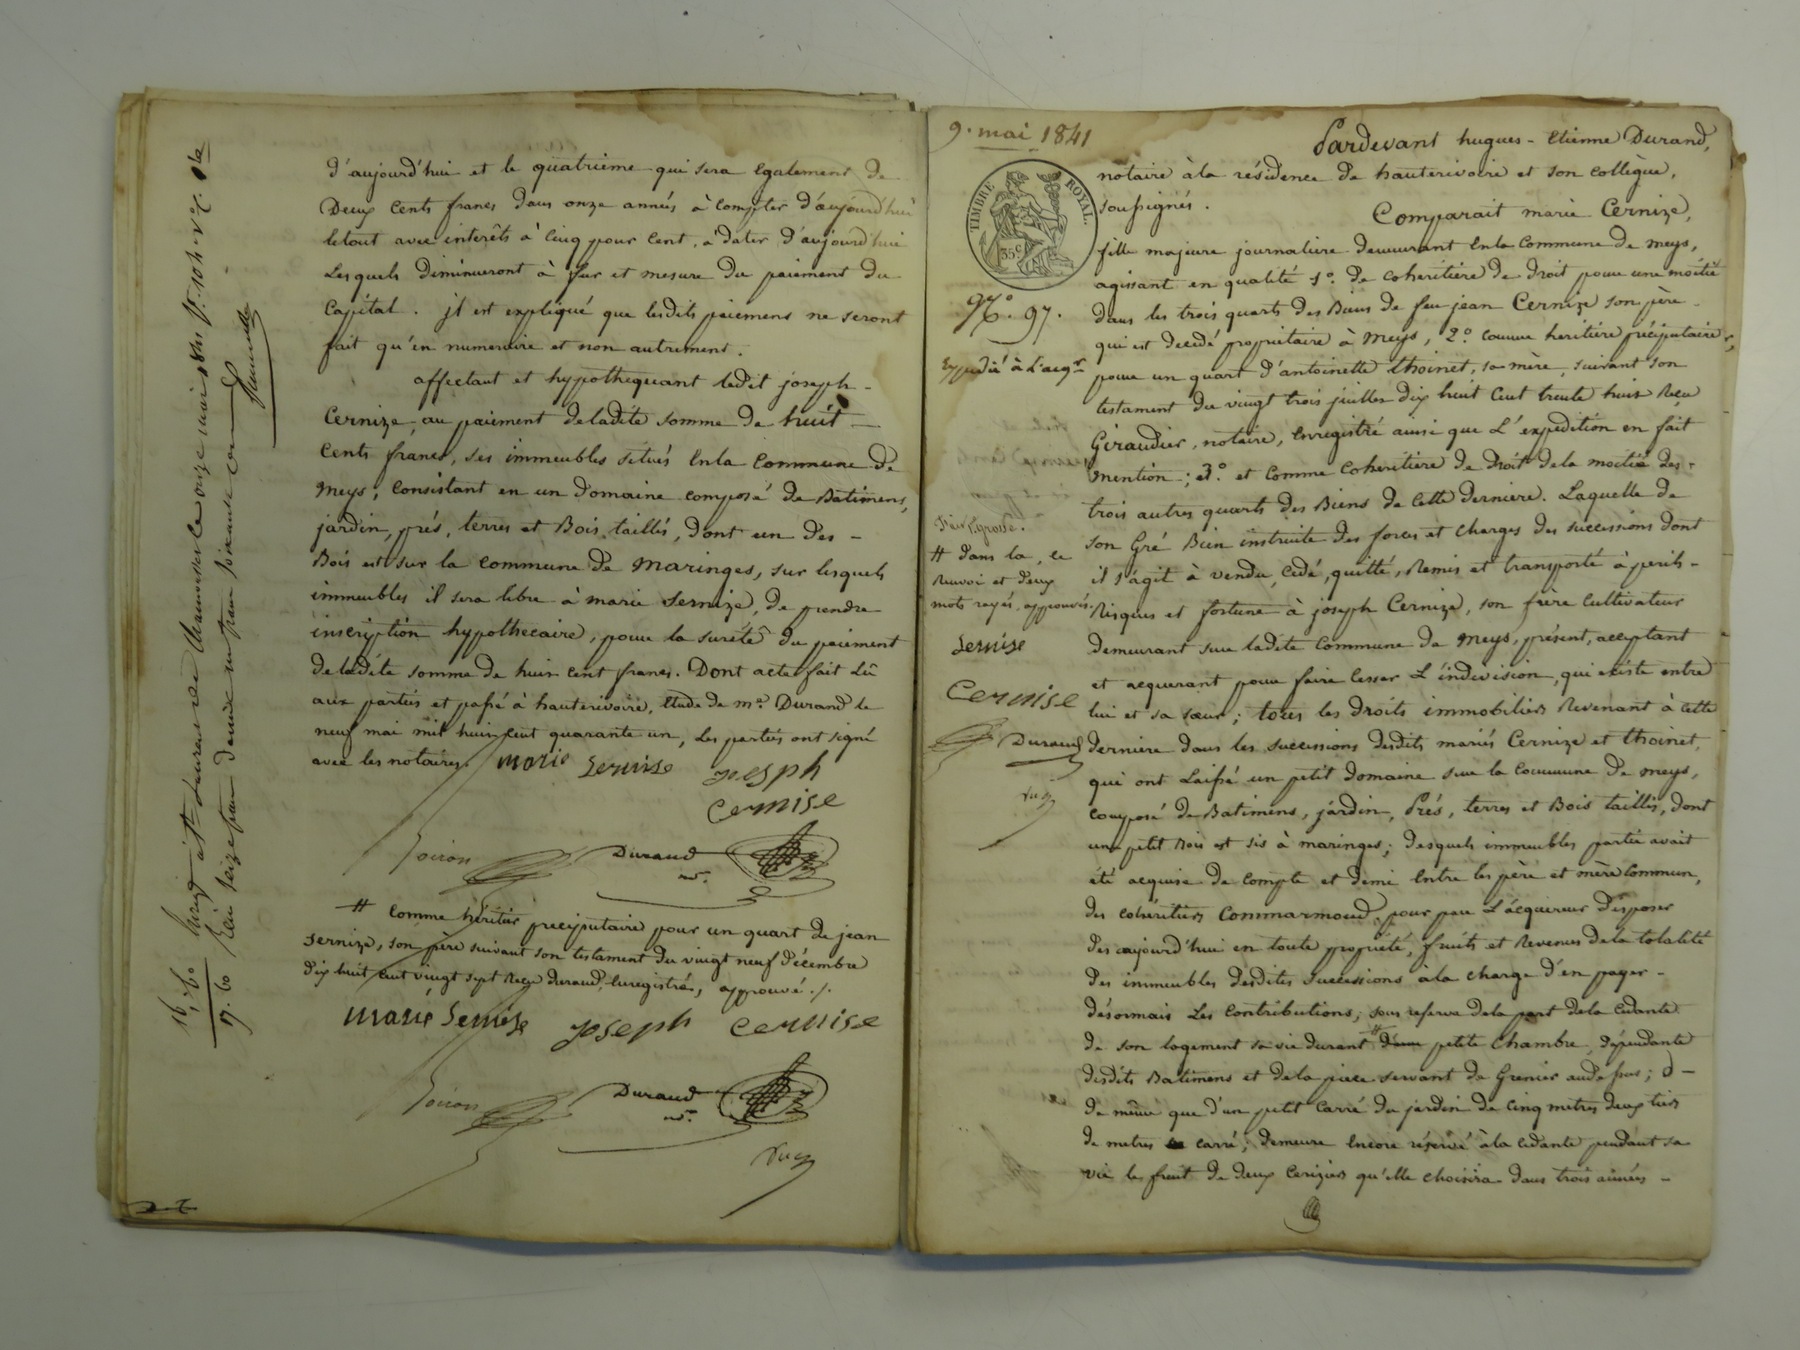 d'aujourd'hui et le quatrieme qui sera Egalement de
Deux Cents francs dans onze années à Compter d'aujourd'hui
letout avec interêts à Cinq pour Cent, à dater d'aujourd'hui
Lesquels diminueront à fur et mesure du paiement du
Capital. jl est expliqué que lesdits paiemens ne seront
fait qu'en numeraire et non autrement.
affectant et hypothequant ledit joseph -
Cernize, au paiment deladite somme de huit
Cents francs, ses immeubles situés Enla Commune de
Meys, Consistant en un domaine composé de Batimens,
jardin, prés, terres et Bois taillis, dont un des -
Bois est sur la commune de Maringes, sur lesquels
immeubles il sera libre à marie Sernize, de prendre
inscription hypothecaire, pour la sureté du paiement
de ladite somme de huit cent francs. Dont acte fait Lû
aux parties et passé à hauterivoire, Etude de me. Durand le
neuf mai mil huit cent quarante un, Les parties ont signé
avec les notaires.
marie Sernise
joseph
Cernise
Durand
nre.
# Comme héritier preciputaire pour un quart de jean
Sernize, son père suivant son testament du vingt neuf décembre
dix huit cent vingt sept Reçu Durand, Enregistré, approuvé ./.
marie Sernise joseph cernise
Durand
nre.
16
1,60
17.60
9. mai 1841
TIMBRE ROYAL.
35c
No. 97.
Expedié à L'acqr
# dans la, ce
Renvoi et deux
mots rayés, approuvés.
Sernise
Cernise
Durand
Pardevant hugues - Etienne Durand,
notaire àla résidence de hauterivoire et son collègue,
soussignés.
Comparait marie Cernize,
fille majeure journaliere demeurant Enla Commune de meys,
agissant en qualité 1o. de coheritière de droit pour une moitié
dans les trois quarts des Biens de feu jean Cernize son père
qui est decedé propriétaire à Meys, 2o. comme heritière préciputaire,
pour un quart d'antoinette thoinet, sa mère, suivant son
testament du vingt trois juillet dix huit Cent trente huit Reçu
Giraudier, notaire, Enregistré ainsi que L'expedition en fait
mention; 3o. et Comme Coheritiere de droit dela moitié des -
trois autres quarts des Biens de Cette derniere. Laquelle de
son Gré Bien instruite des forces et charges des successions dont
il s'agit à vendu, cédé, quitté, Remis et transporté à perils -
Risques et fortune à joseph Cernize, son frère Cultivateur
demeurant sur ladite Commune de Meys, présent, acceptant
et acquerant pour faire Cesser L'indivision, qui existe entre
lui et sa sœur; tous les droits immobiliers Revenant à Cette
derniere dans les successions desdits mariés Cernize et thoinet,
qui ont Laissé un petit domaine sur la Commune de meys,
composé de Batimens, jardin, Prés, terres et Bois taillis, dont
une petit Bois est sis à maringes; desquels immeubles partie avait
été acquise de Compte et demi Entre les père et mère Commun,
des cohéritiers Commarmond, pour par L'acquereur disposer
dès aujourd'hui en toute propriété, fruits et Revenus dela totalité
des immeubles desdites successions àla charge d'en payer -
désormais Les Contributions; sous reserve dela part dela Cedante
de son logement sa vie durant # d'une petite Chambre dépendante
desdits Batimens et dela piece servant de Grenier audessus; d -
de même que d'un petit Carré du jardin de Cinq metres deux tiers
de metres carré; demeure Encore réservé àla cedante pendant sa
vie le fruit de deux Cerizier qu'elle choisira dans trois années -